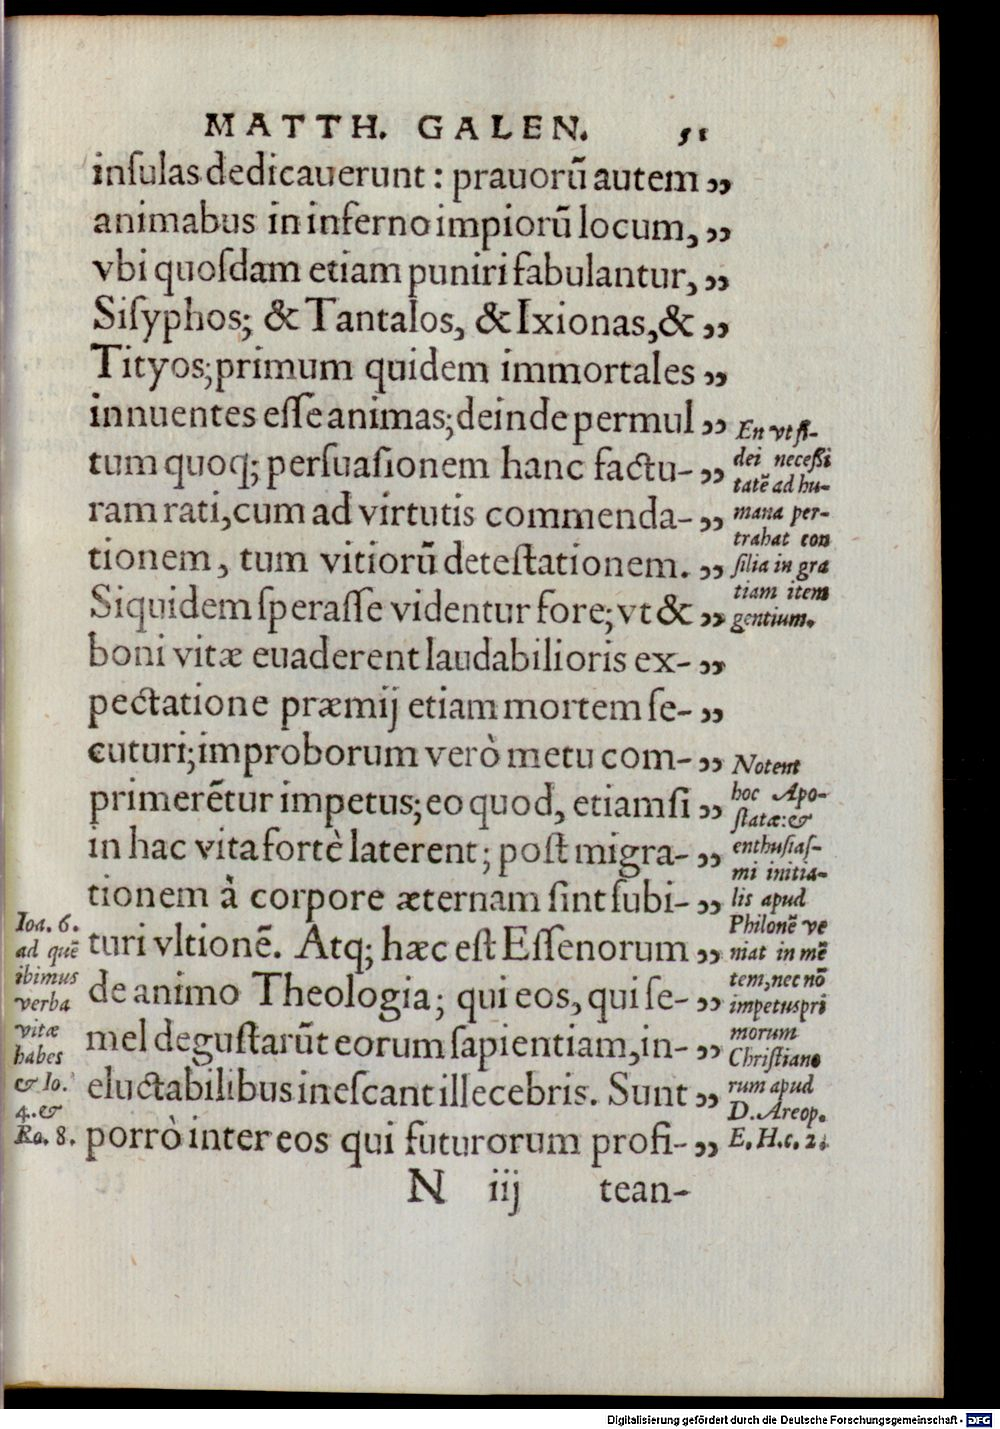 MATTH. GALEN. 51
inſulas dedicauerunt : prauorũ autem „
animabus in inferno impiorũ locum, „
vbi quoſdam etiam puniri fabulantur, „
Siſyphos; & Tantalos, & Ixionas, & „
Tityos; primum quidem immortales „
innuentes eſſe animas; deinde permul „
tum quoq; perſuaſionem hanc factu- „
ram rati, cum ad virtutis commenda- „
tionem, tum vitiorũ deteſtationem. „
Siquidem ſperaſſe videntur fore; vt & „
boni vitæ euaderent laudabilioris ex- „
pectatione præmij etiam mortem ſe- „
cuturi; improborum verò metu com- „
primerẽtur impetus; eo quod, etiamſi „
in hac vita fortè laterent; poſt migra- „
tionem à corpore æternam ſint ſubi- „
turi vltionẽ. Atq; hæc eſt Eſſenorum „
de animo Theologia; qui eos, qui ſe- „
mel deguſtarũt eorum ſapientiam, in- „
eluctabilibus ineſcant illecebris. Sunt „
porrò inter eos qui futurorum profi- „
N iij tean-
En vt fi-
dei neceſſi
tatẽ ad hu-
mana per-
trahat con
ſilia in gra
tiam item
gentium.
Notent
hoc Apo-
ſtatæ: &
enthuſiaſ-
mi initia-
lis apud
Philonẽ ve
niat in mẽ
tem, nec nõ
impetus pri
morum
Chriſtiano
rum apud
D. Areop.
E. H. c. 2.
Ioa. 6.
ad quẽ
ibimus
verba
vitæ
habes
& Io.
4. &
Ro. 8.
Digitalisierung gefördert durch die Deutsche Forschungsgemeinschaft - DFG